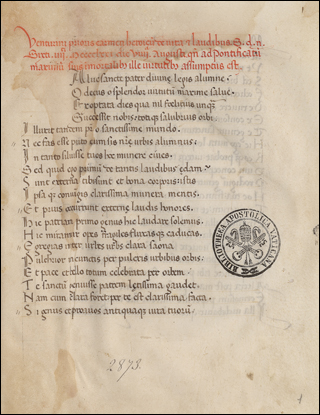 1
Venturini prioris carmen heroicum de vita et laudibus S. d. n.
Sixti iiij. Augusti qui ad Pontificatum
maximum suis immortalibus ille virtutibus assumptus est.
Alme sancte pater divine legis alumne
O decus o splendor virtutum maxime salve
Exoptata dies qua nil felicius unquam
Successit nobis totique salubrius orbi
Illuxit tandem pro sanctissime mundo
Nec fas esse puto cum sis urbis alumnus
In tanto siluisse tuos hec munere cives
Sed quid ego primum de tantis laudibus edam
Sunt externa tibi sunt et bona corporis
Ipsaque conspicua clarissima munera mentis
Et prius externe laudis honores
Hec patriam primo genus hec laudare solemus
Hec miramur opes fragiles fluxasque caducas
inter urbes urbs clara Saona
Pulchrior pulcras urbibus orbis
Et pace et bello totum celebrata per orbem
Te sanctum genuisse patrem letissima gaudet
Nam cum clara foret per te est clarissima facta
Si genus et proavos antiquaque iura tuorum
BIBLIOTHECA APOSTOLICA VATICANA
2873.
1